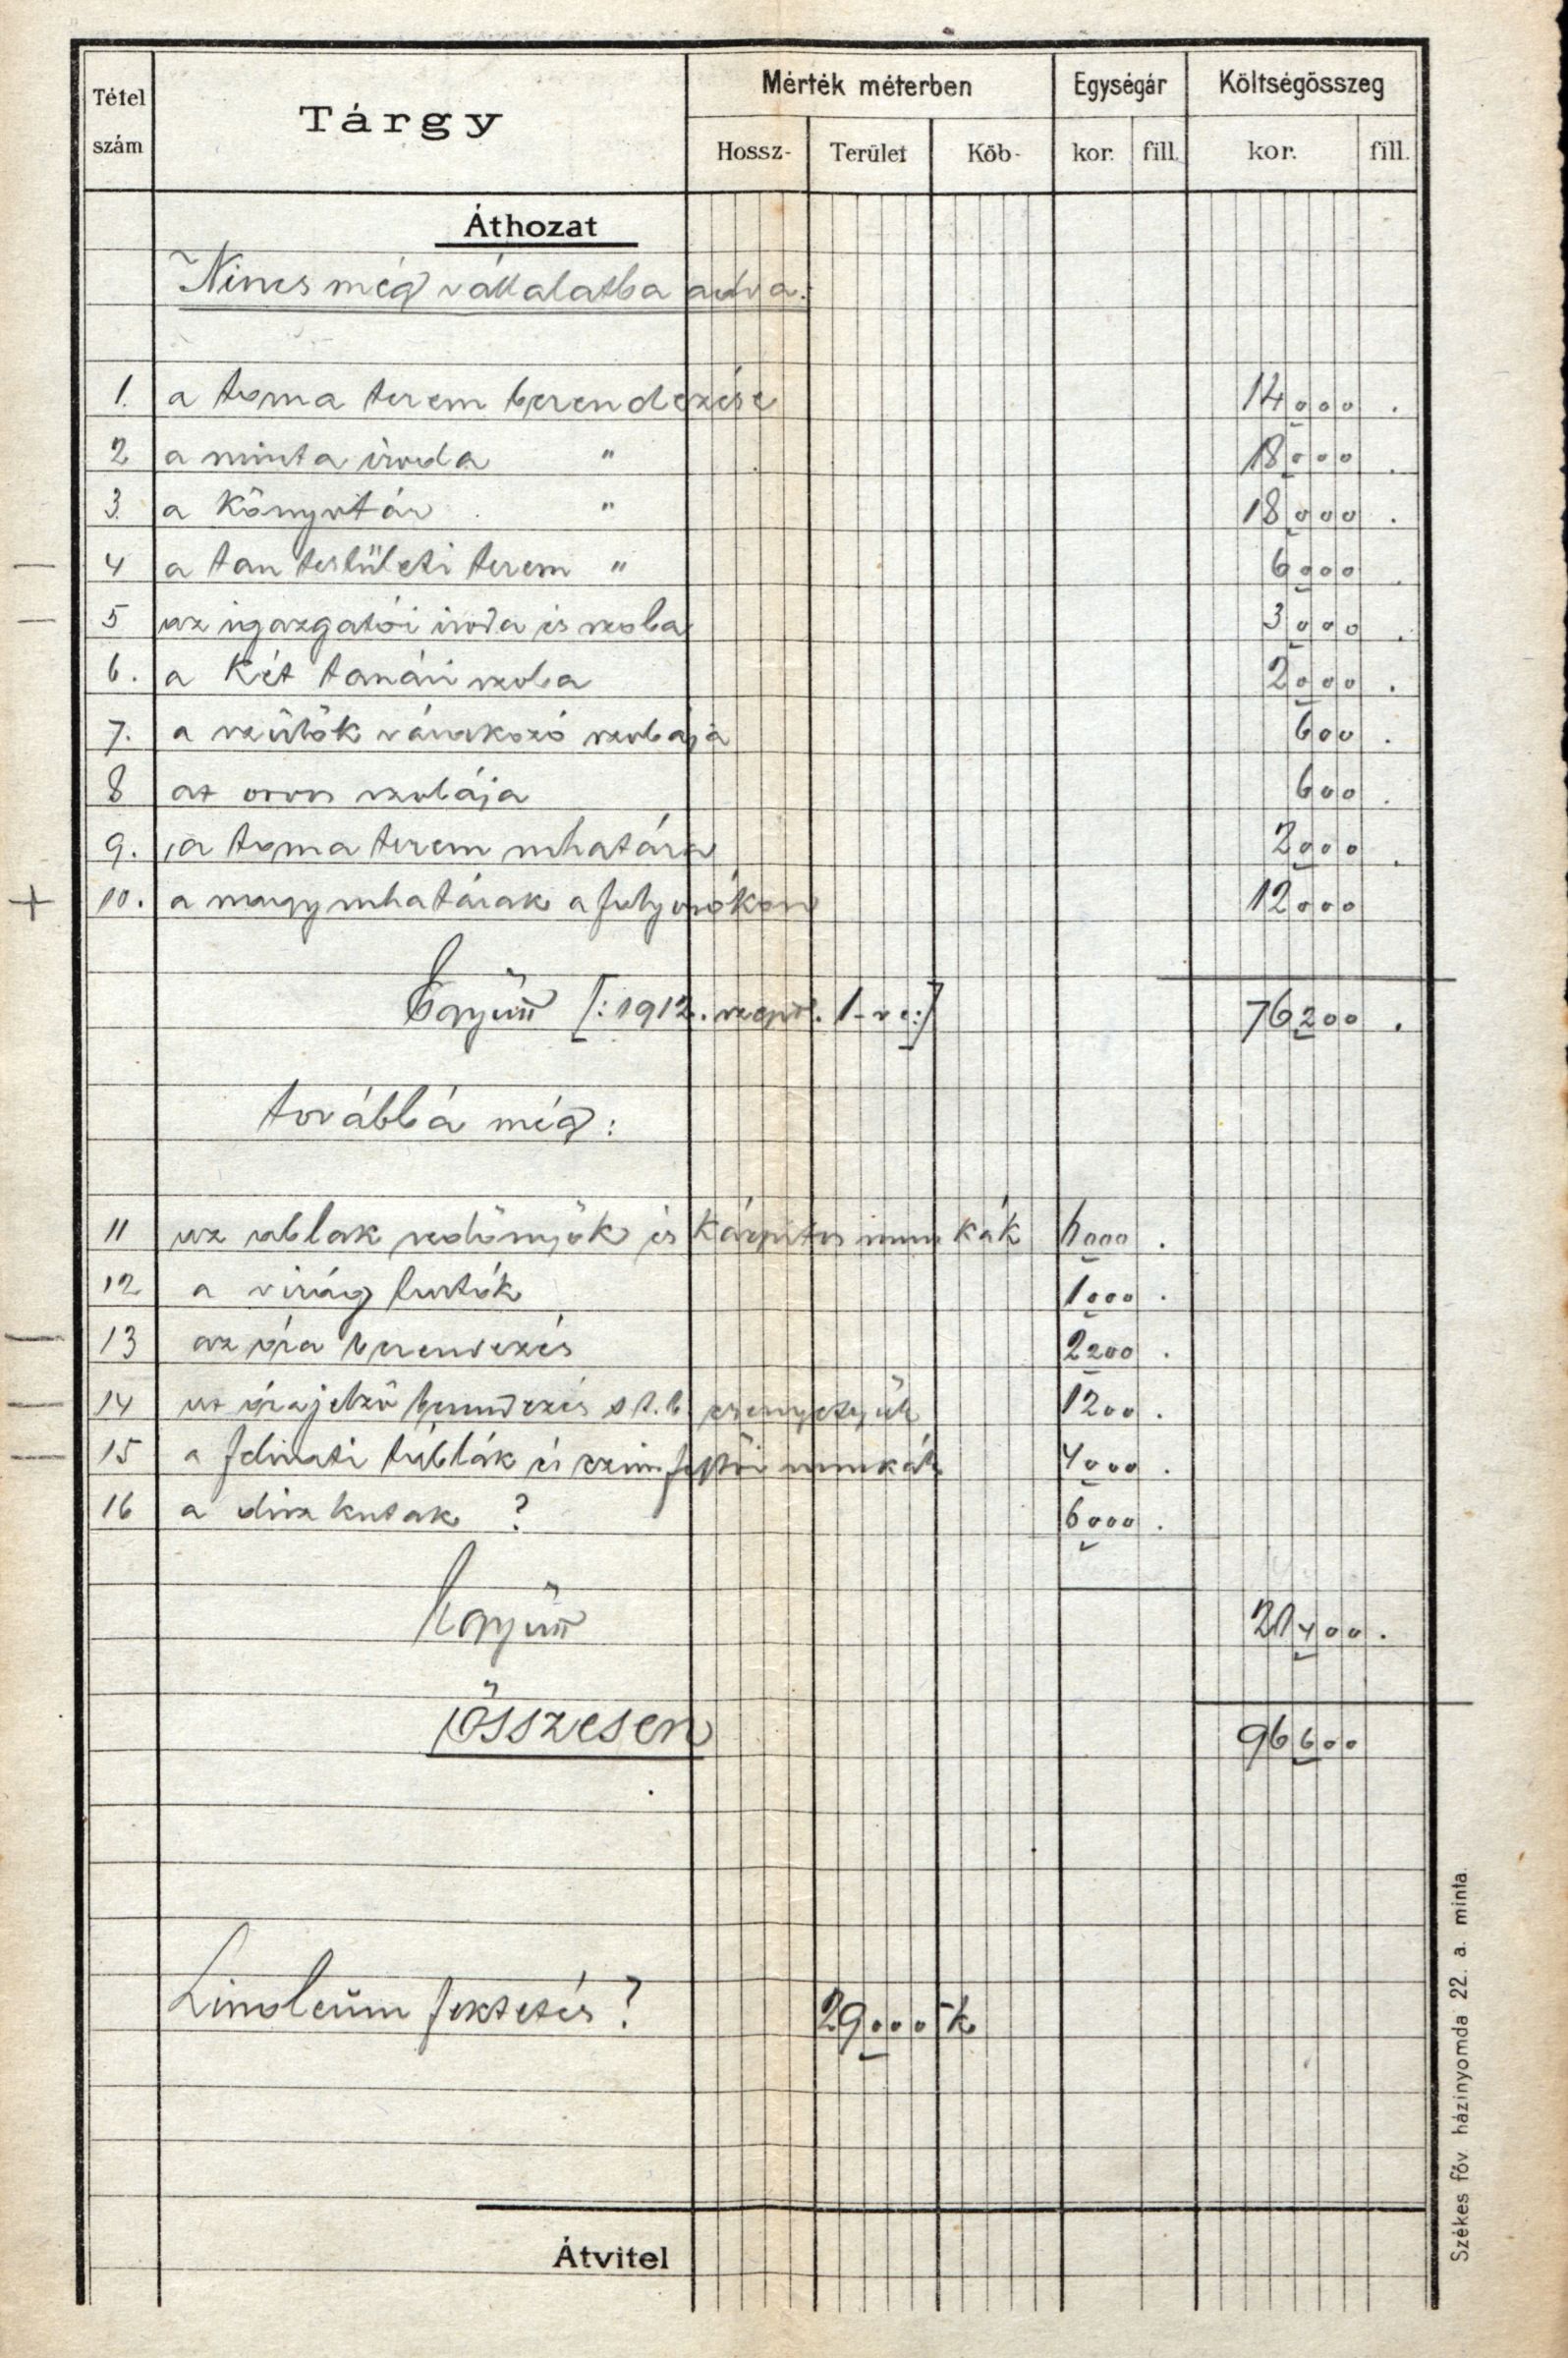 Tétel szám
Tárgy
Mérték méterben
Egységár
Költségösszeg
Hossz- Terület Köb- kor. fill. kor. fill.
Áthozat
Nincs még vállalatba adva.
1. a torna terem berendezése 14000 .
2 a minta iroda " 18000 .
3. a Könyvtár " 18000 .
4 a tantestületi terem " 6000 .
5 az igazgatói iroda és szoba 3000 .
6. a két tanári szoba 2000 .
7. a szülők várakozó szobája 600 .
8 az orvos szobája 600 .
9. a torna terem ruhatára 2000 .
10. a nagy ruhatárak a folyosókon 12000
Együtt [: 1912. szept. 1-re :] 76200 .
továbbá még :
11 az ablak redőnyök és Kárpitos munkák 6000 .
12 a virág tartók 1000 .
13 az óra berendezés 2200 .
14 az órajelző berendezés s t. b. csengetyűk 1200 .
15 a felirati táblák és czimfestői munkák 4000 .
16 a disz kutak ? 6000 .
Együtt 20400 .
összesen 96600
Linoleum fektetés ? 29000 k
Átvitel
Székes főv házinyomda 22. a. minta